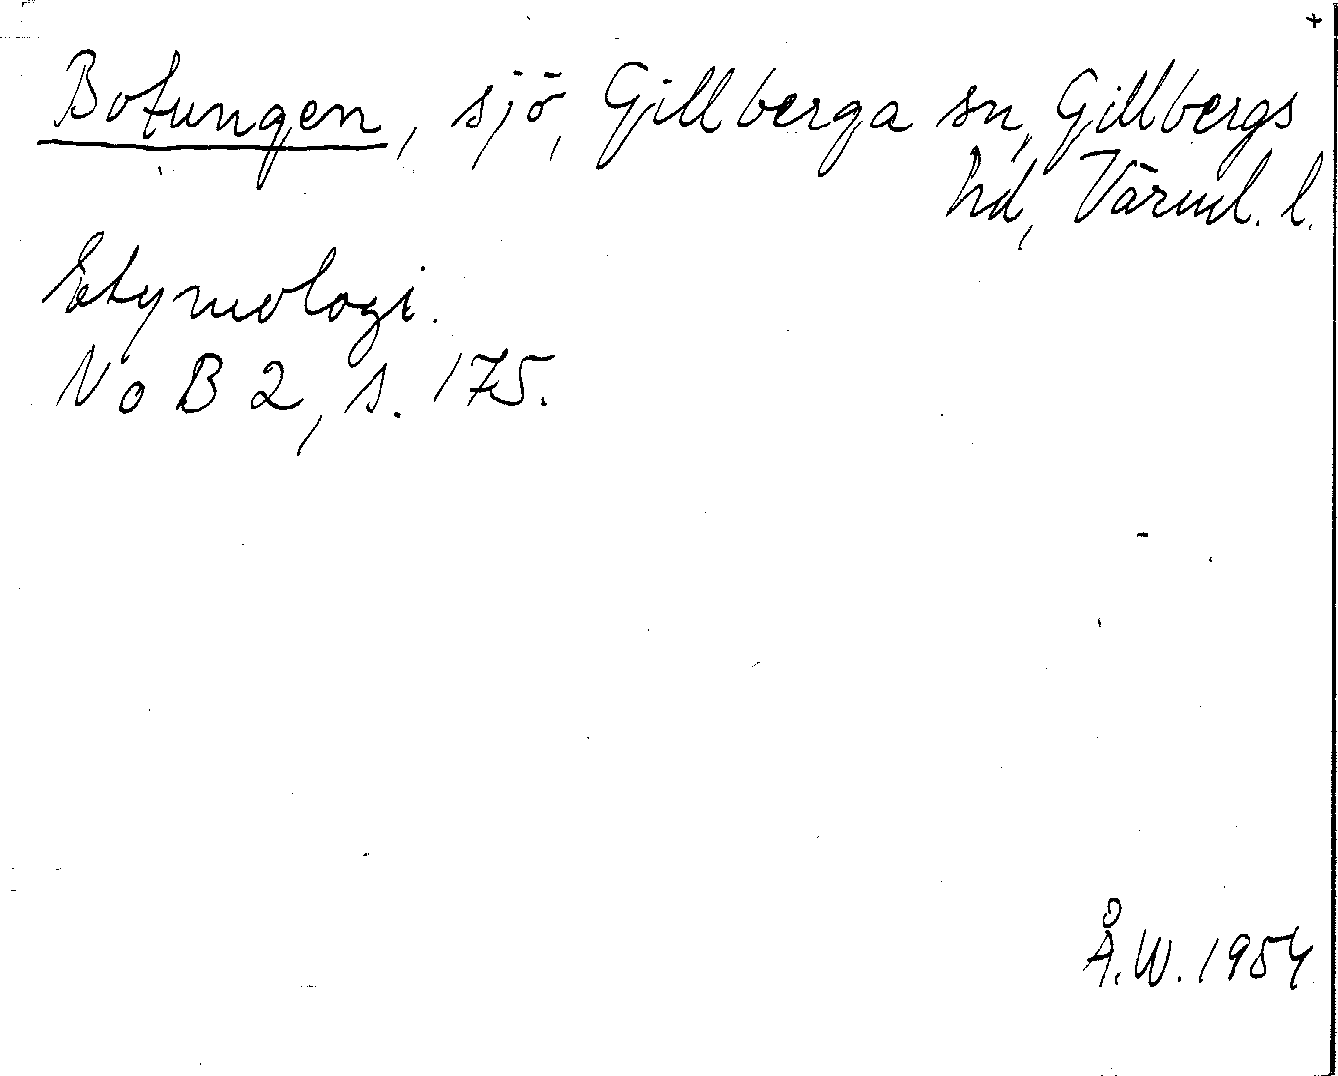 +
Botungen, sjö, Gillberga sn, Gillbergs
hd, Värml. l.
Etymologi.
NoB 2, s. 175.
Å.W. 1954